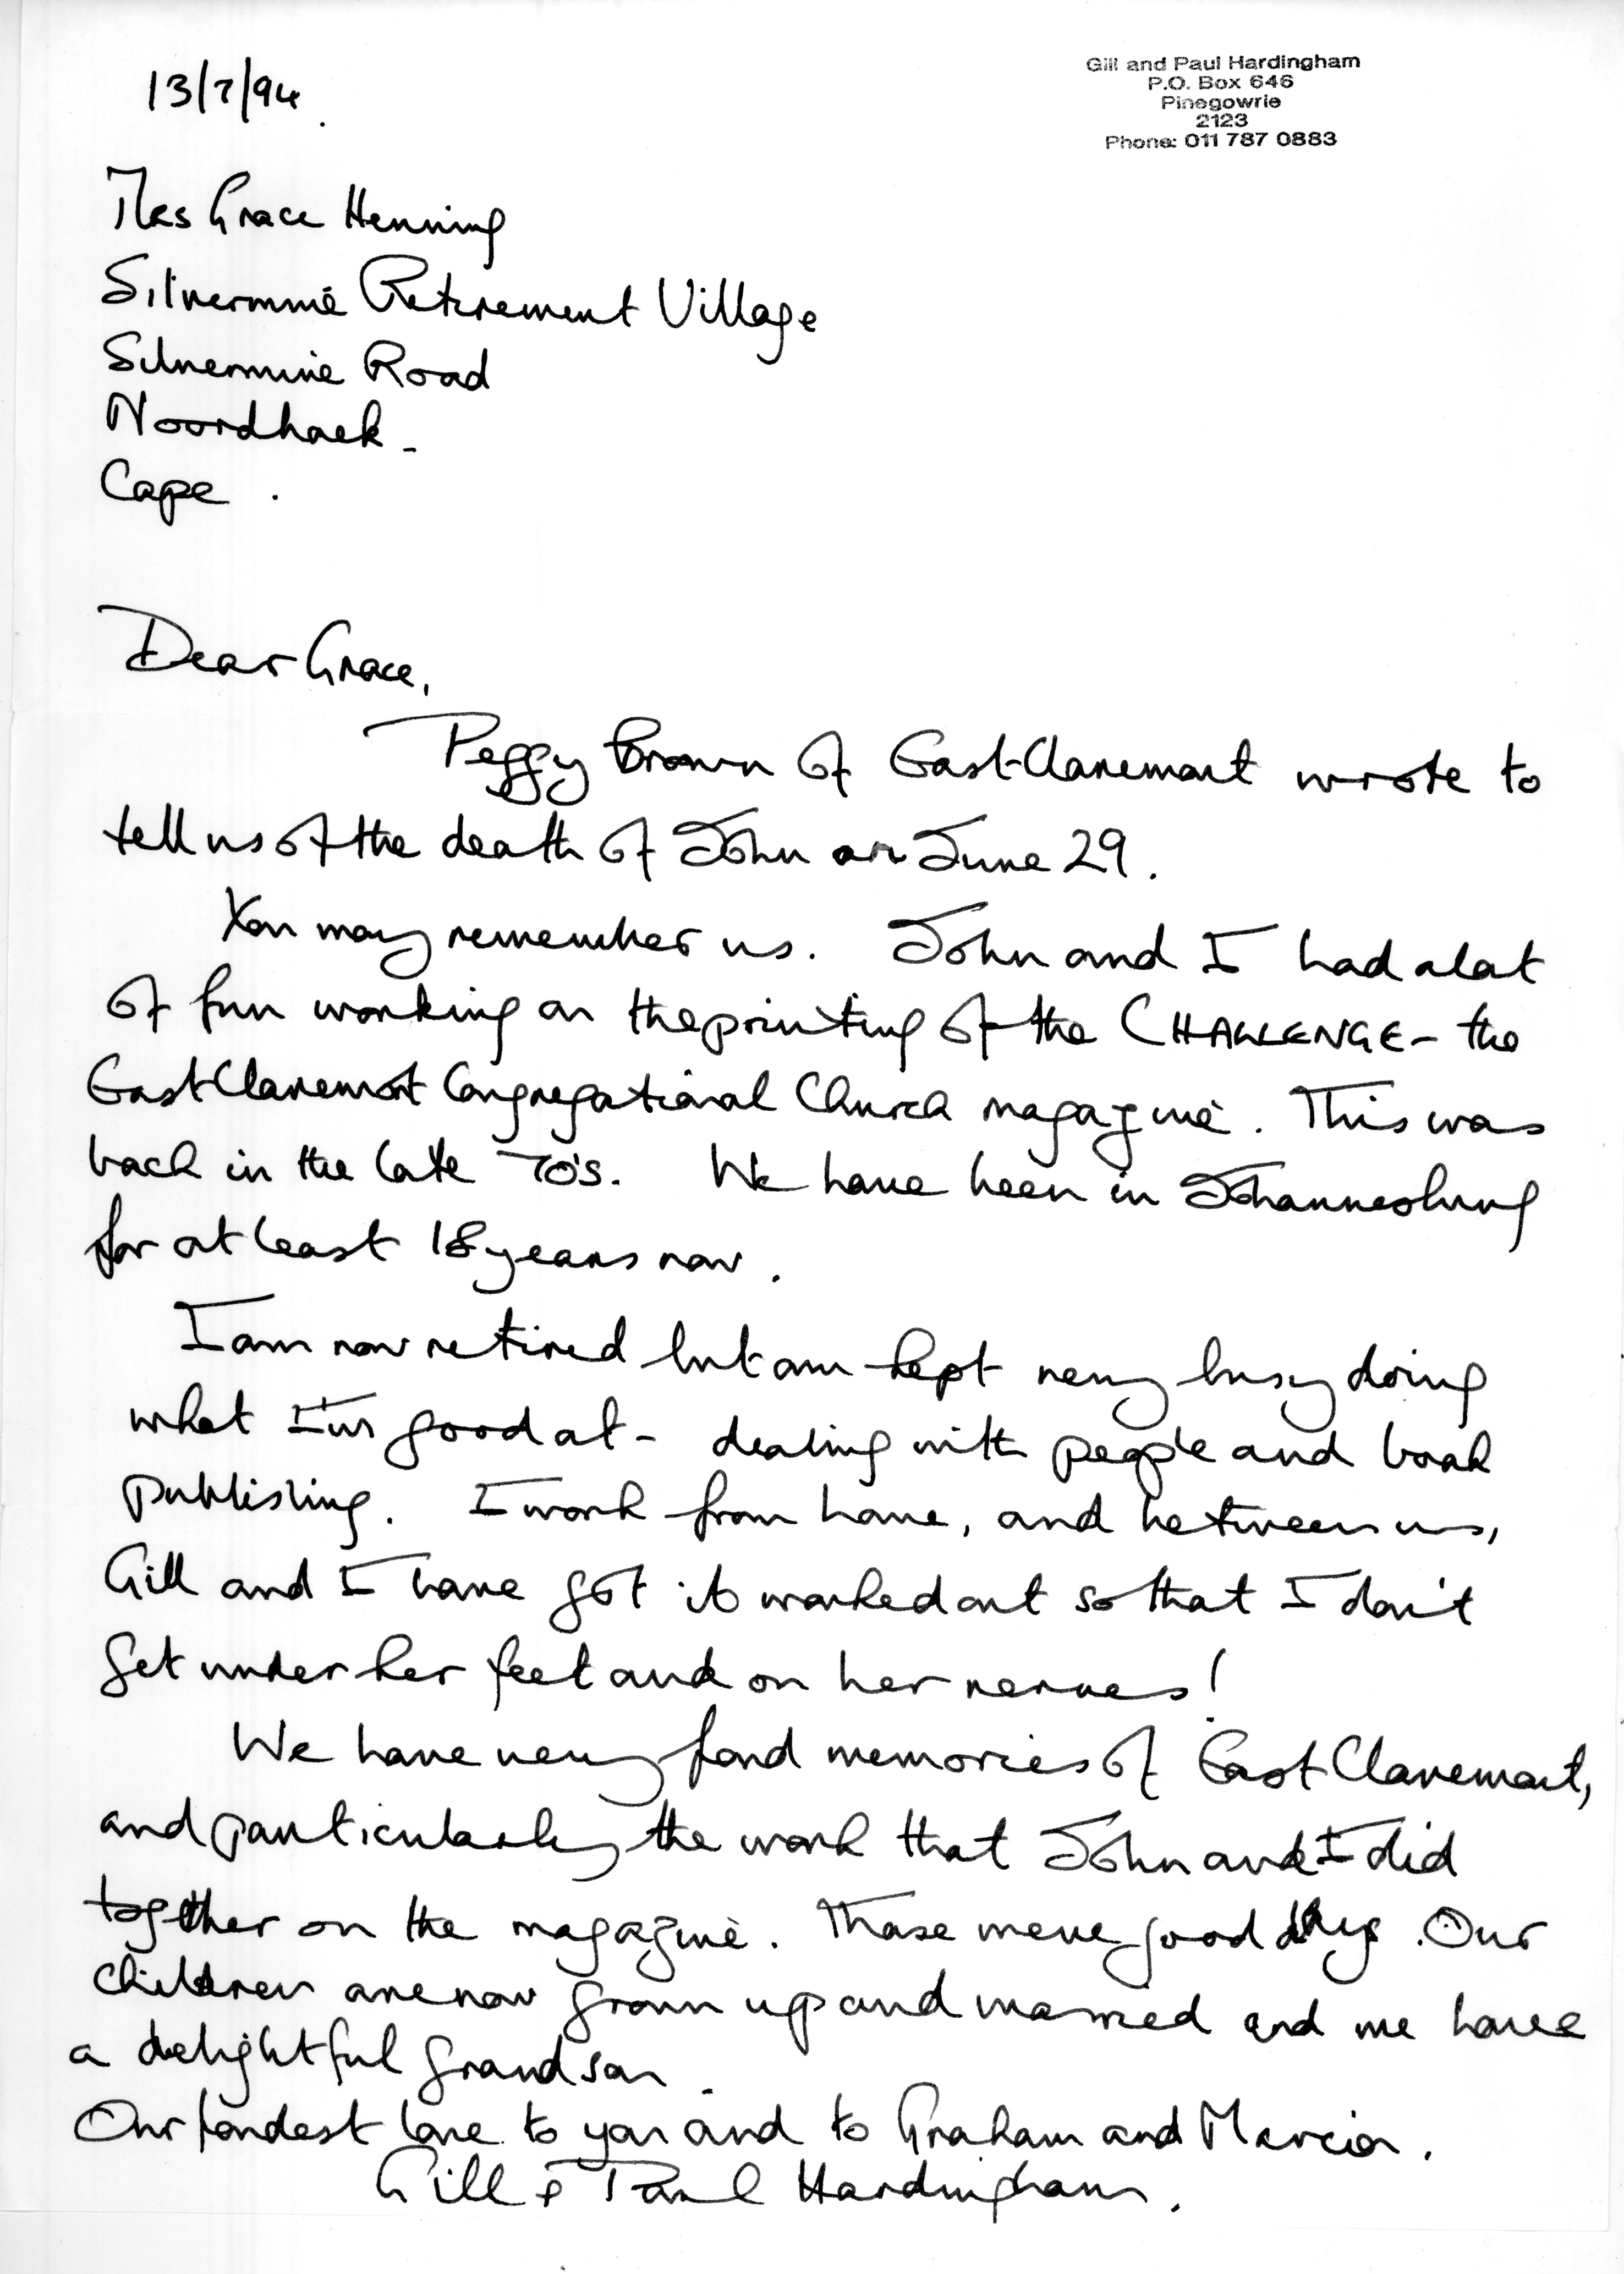 13/7/94.
Gill and Paul Hardingham
P.O. Box 646
Pinegowrie
2123
Phone: 011 787 0883
Mrs Grace Henning
Silvermine Retirement Village
Silvermine Road
Noordhoek -
Cape .
Dear Grace,
Peggy Brown of East Claremont wrote to
tell us of the death of John on June 29.
You may remember us. John and I had a lot
of fun working on the printing of the CHALLENGE - the
East Claremont Congregational Church magazine. This was
back in the late 70's. We have been in Johannesburg
for at least 18 years now.
I am now retired but am kept very busy doing
what I'm good at - dealing with people and book
publishing. I work from home, and between us,
Gill and I have got it worked out so that I don't
get under her feet and on her nerves!
We have very fond memories of East Claremont,
and particularly the work that John and I did
together on the magazine. Those were good days. Our
children are now grown up and married and we have
a delightful grandson.
Our fondest love to you and to Graham and Marcia.
Gill & Paul Hardingham.